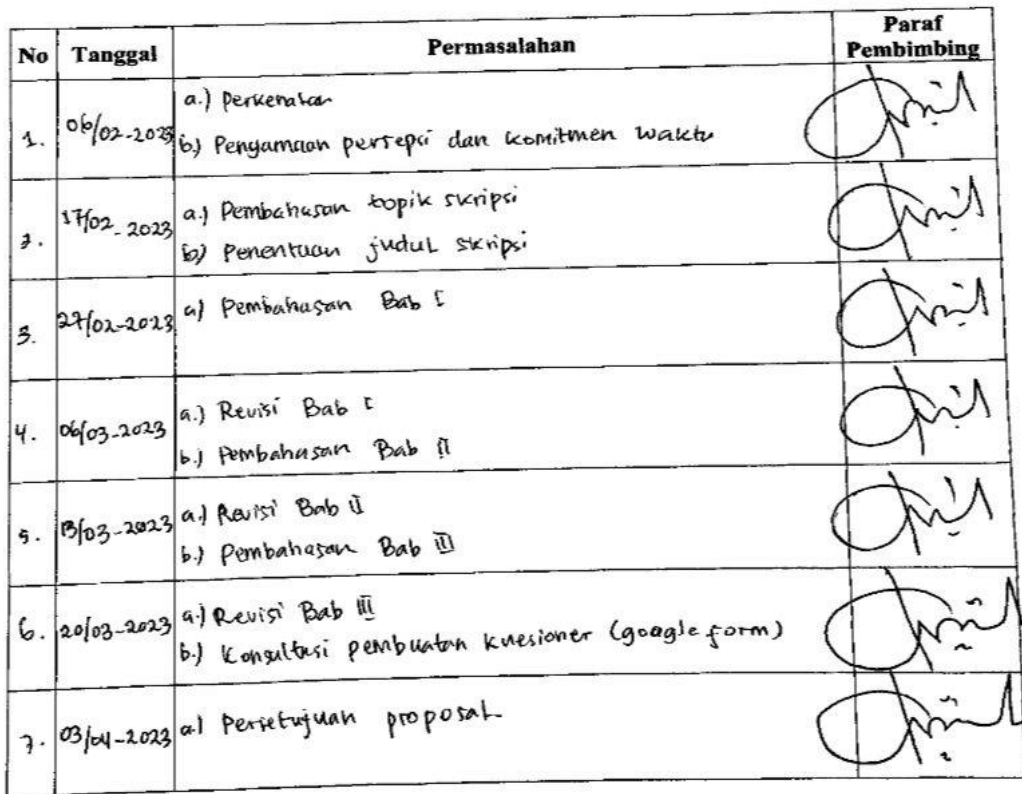 No Tanggal Permasalahan Paraf Pembimbing
1. 06/02-2023 a.) Perkenalan
b.) Penyamaan persepsi dan komitmen waktu
2. 17/02-2023 a.) Pembahasan topik skripsi
b) Penentuan judul skripsi
3. 27/02-2023 a) Pembahasan Bab I
4. 06/03-2023 a.) Revisi Bab I
b.) Pembahasan Bab II
5. 13/03-2023 a.) Revisi Bab II
b.) Pembahasan Bab III
6. 20/03-2023 a.) Revisi Bab III
b.) Konsultasi pembuatan kuesioner (google form)
7. 03/04-2023 a) Persetujuan proposal